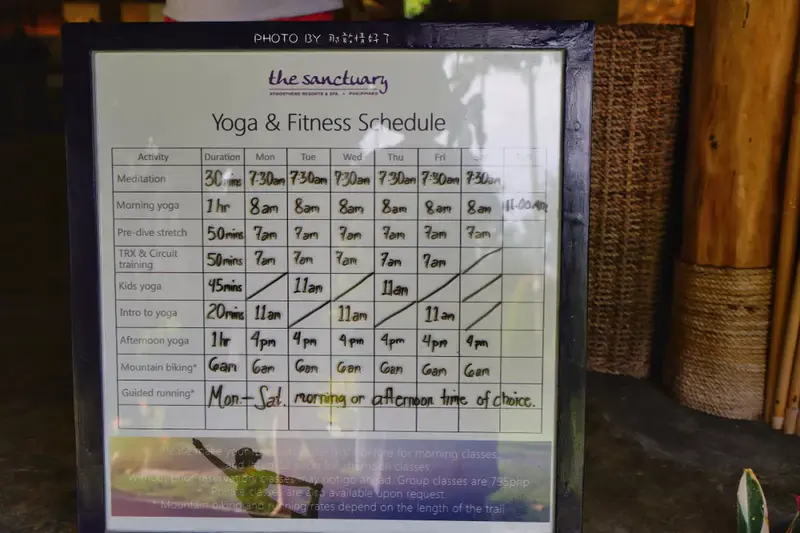 PHOTO BY
the sanctuary
ATMOSPHERE RESORTS & SPA • PHILIPPINES
Yoga & Fitness Schedule
Activity Duration Mon Tue Wed Thu Fri
Meditation 30 mins 7:30am 7:30am 7:30am 7:30am 7:30am 7:30am
Morning yoga 1 hr 8am 8am 8am 8am 8am 8am 11:00am
Pre-dive stretch 50mins 7am 7am 7am 7am 7am 7am
TRX & Circuit training 50mins 7am 7am 7am 7am 7am
Kids yoga 45mins 11am 11am
Intro to yoga 20mins 11am 11am 11am
Afternoon yoga 1hr 4pm 4pm 4pm 4pm 4pm 4pm
Mountain biking* 6am 6am 6am 6am 6am 6am 6am
Guided running* Mon.-Sat. morning or afternoon time of choice.
Please make your before for morning classes,
and for afternoon classes.
Without prior reservation classes may not go ahead. Group classes are 795php
Private classes are also available upon request.
* Mountain biking and running rates depend on the length of the trail